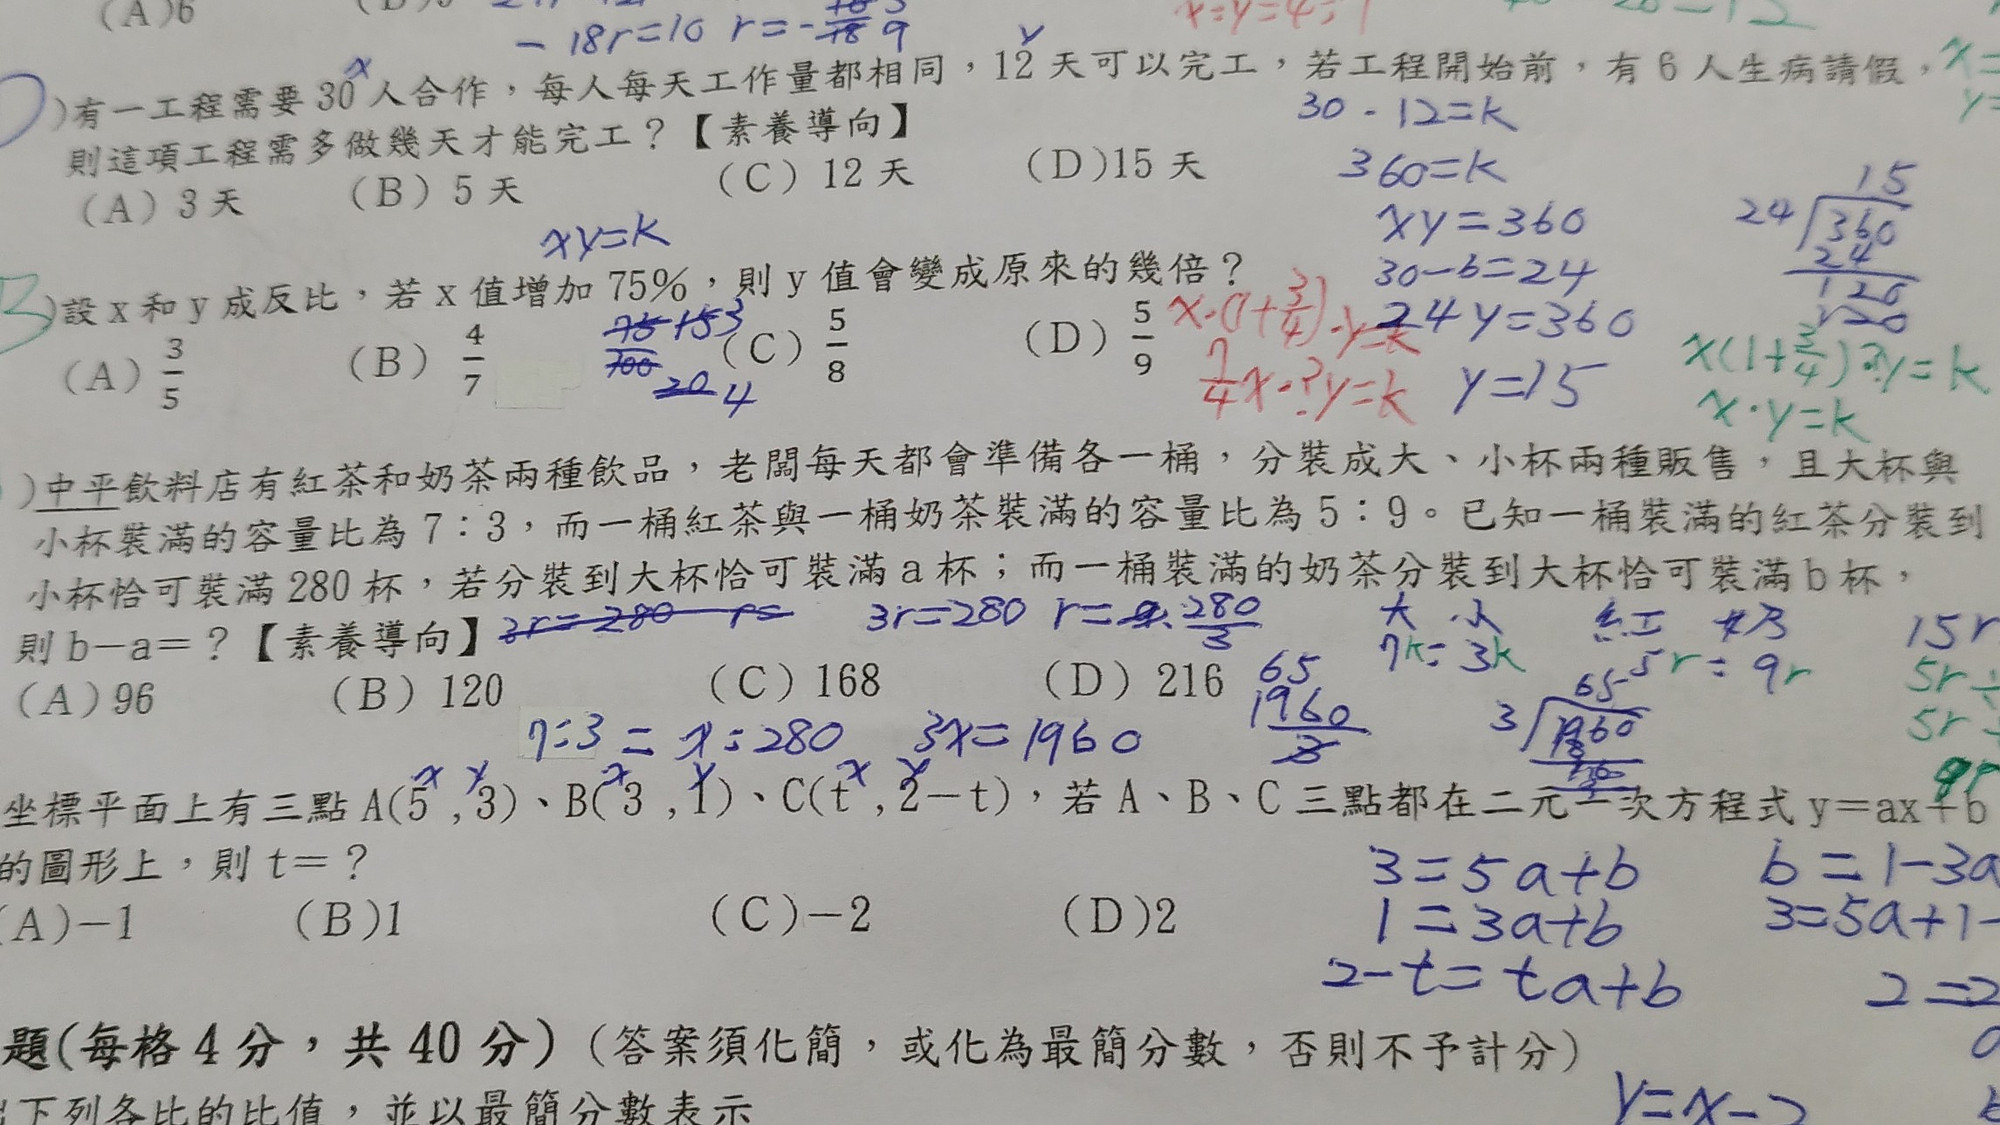 (A)6
-18r=10 r=-
x:y=4:1
)有一工程需要30人合作，每人每天工作量都相同，12天可以完工，若工程開始前，有6人生病請假，
則這項工程需多做幾天才能完工？【素養導向】
(A)3天 (B)5天 (C)12天 (D)15天
30·12=k
360=k
xy=360
30-6=24
24y=360
y=15
15
24 360
24
120
120
xy=k
)設x和y成反比，若x值增加75%，則y值會變成原來的幾倍？
(A)3/5 (B)4/7 (C)5/8 (D)5/9
x·(1+3/4)·y=k
7/4x·?y=k
x(1+3/4)?y=k
x·y=k
)中平飲料店有紅茶和奶茶兩種飲品，老闆每天都會準備各一桶，分裝成大、小杯兩種販售，且大杯與
小杯裝滿的容量比為7：3，而一桶紅茶與一桶奶茶裝滿的容量比為5：9。已知一桶裝滿的紅茶分裝到
小杯恰可裝滿280杯，若分裝到大杯恰可裝滿a杯；而一桶裝滿的奶茶分裝到大杯恰可裝滿b杯，
則b-a=？【素養導向】
3r=280 r=
大 小 紅 奶
7k:3k 5r:9r
15r
5r
5r
9r
(A)96 (B)120 (C)168 (D)216
7:3=x:280 3x=1960
65
1960
3
65
3 1960
坐標平面上有三點A(5,3)、B(3,1)、C(t,2-t)，若A、B、C三點都在二元一次方程式y=ax+b
的圖形上，則t=？
(A)-1 (B)1 (C)-2 (D)2
3=5a+b
1=3a+b
2-t=ta+b
b=1-3a
3=5a+1-
2=2
題(每格4分，共40分)(答案須化簡，或化為最簡分數，否則不予計分)
下列各比的比值，並以最簡分數表示
y=x-2